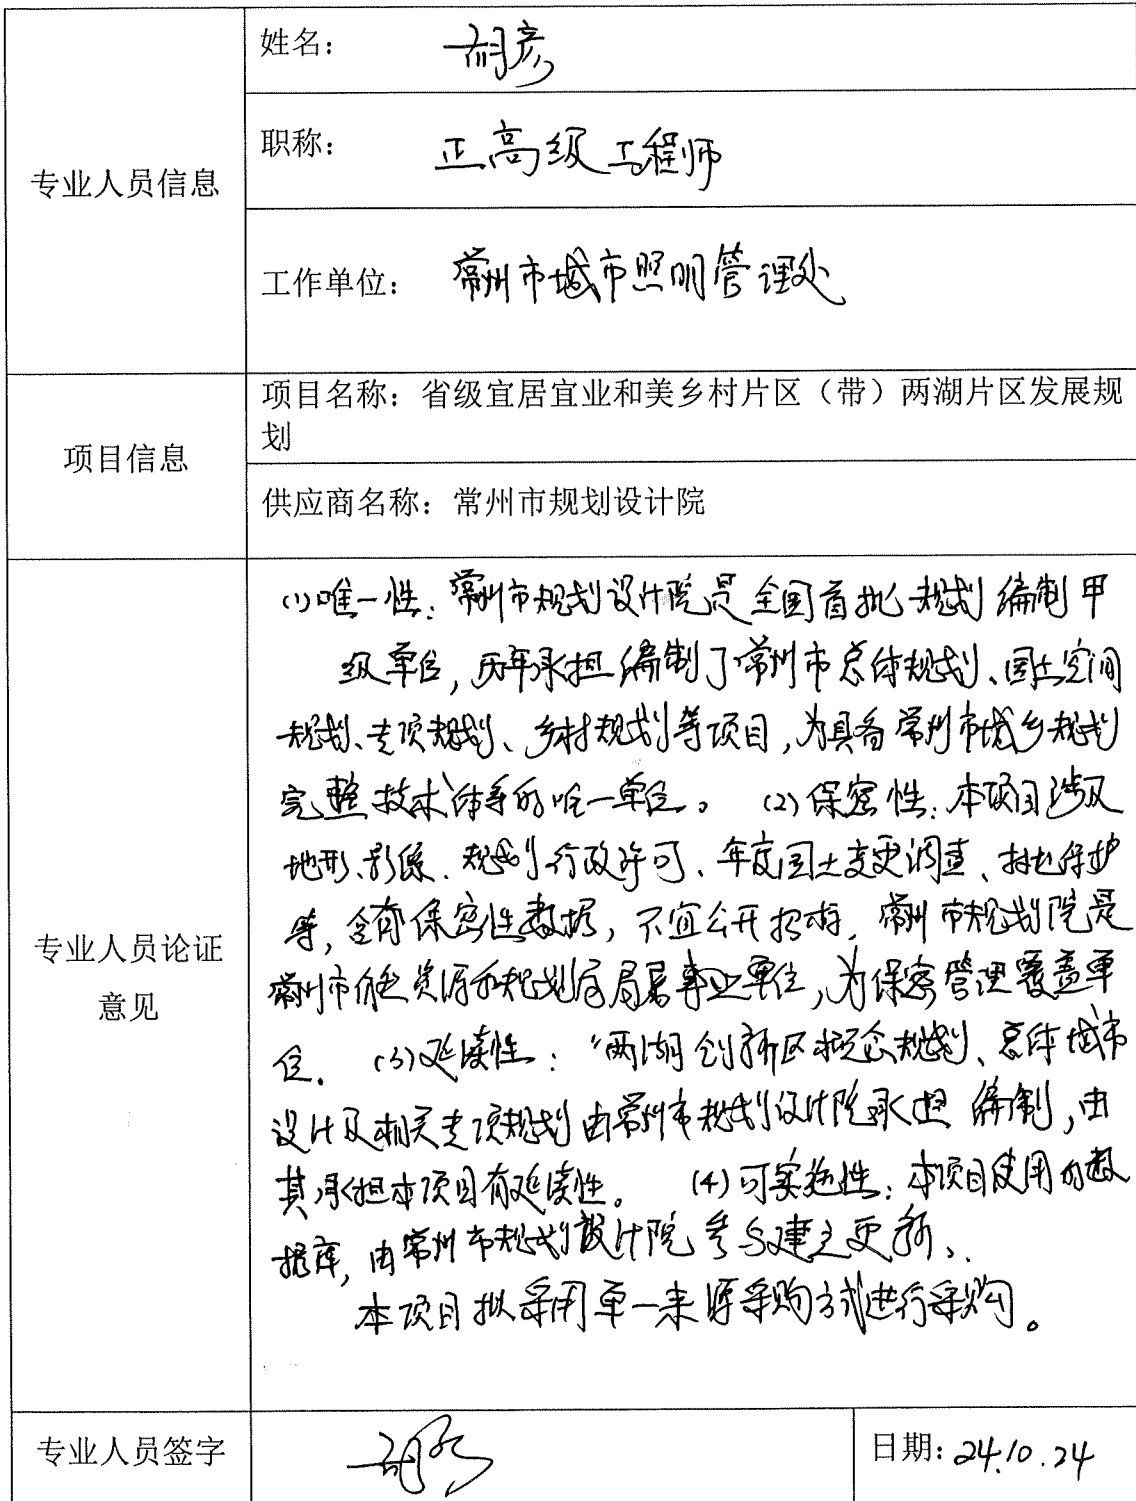 姓名：胡彦
职称：正高级工程师
专业人员信息
工作单位：常州市城市照明管理处
项目名称：省级宜居宜业和美乡村片区（带）两湖片区发展规
划
项目信息
供应商名称：常州市规划设计院
(1)唯一性：常州市规划设计院是全国首批规划编制甲
级单位，历年承担编制了常州市总体规划、国土空间
规划、专项规划、乡村规划等项目，为具备常州市城乡规划
完整技术体系的唯一单位。 (2)保密性：本项目涉及
地形、影像、规划行政许可、年度国土变更调查、耕地保护
等，含有保密性数据，不宜公开招标，常州市规划院是
专业人员论证
意见
常州市自然资源和规划局局属事业单位，为保密管理覆盖单
位。 (3)延续性：“两湖创新区概念规划、总体城市
设计及相关专项规划由常州市规划设计院承担编制，由
其承担本项目有延续性。 (4)可实施性：本项目使用的数
据库，由常州市规划设计院参与建立更新、.
本项目拟采用单一来源采购方式进行采购。
专业人员签字 胡彦 日期：24.10.24